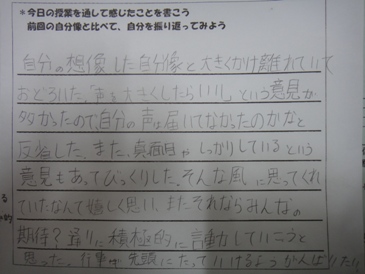 *今日の授業を通して感じたことを書こう
前回の自分像と比べて、自分を振り返ってみよう
自分の想像した自分像と大きくかけ離れていて
おどろいた。「声を大きくしたらいい」という意見が
多かったので、自分の声は届いてなかったのかなと
反省した。また、真面目やしっかりしているという
意見もあってびっくりした。そんな風に思ってくれ
ていたなんて嬉しく思い、またそれならみんなの
期待?通りに積極的に言動していこうと
思った。行事の先頭にたっていけるようがんばりたい